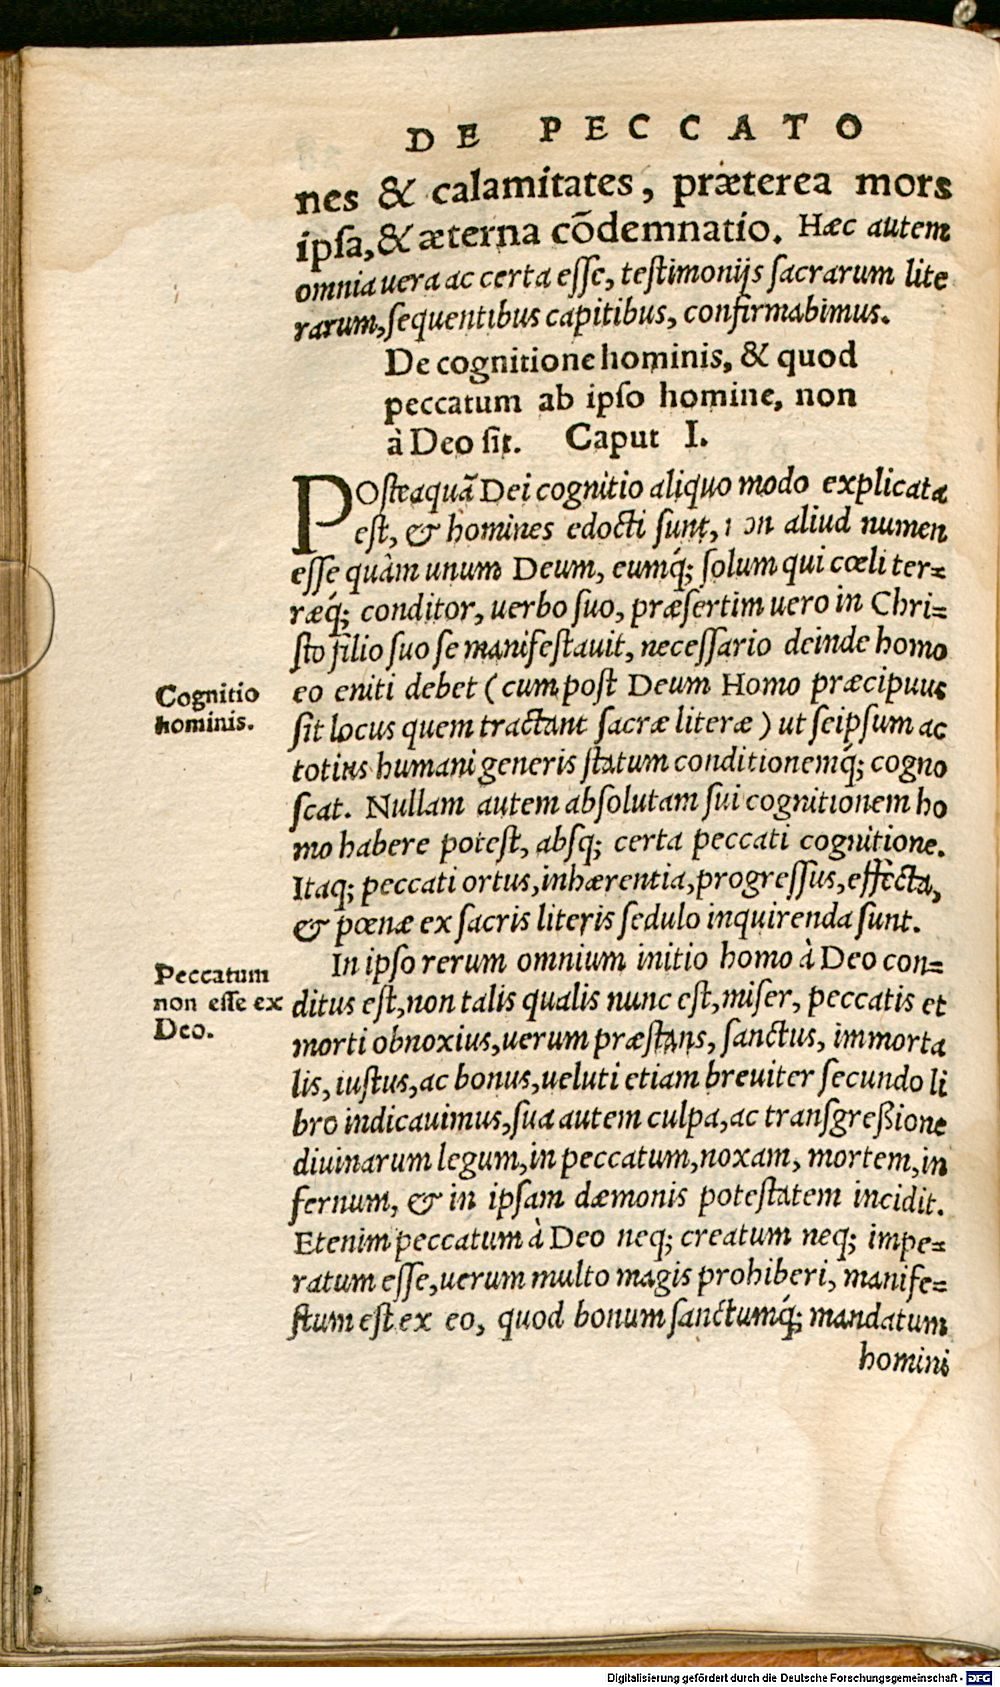 DE PECCATO
nes & calamitates, præterea mors
ipſa, & æterna cõdemnatio. Hæc autem
omnia uera ac certa eſſe, teſtimonijs ſacrarum lite
rarum, ſequentibus capitibus, confirmabimus.
De cognitione hominis, & quod
peccatum ab ipſo homine, non
à Deo ſit. Caput I.
POſteaquã Dei cognitio aliquo modo explicata
eſt, & homines edocti ſunt, non aliud numen
eſſe quàm unum Deum, eumq́; ſolum qui cœli ter-
ræq́; conditor, uerbo ſuo, præſertim uero in Chri-
ſto filio ſuo ſe manifeſtauit, neceſſario deinde homo
Cognitio
hominis.
eo eniti debet (cum poſt Deum Homo præcipuus
ſit locus quem tractant ſacræ literæ) ut ſeipſum ac
totius humani generis ſtatum conditionemq́; cogno
ſcat. Nullam autem abſolutam ſui cognitionem ho
mo habere poteſt, abſq; certa peccati cognitione.
Itaq; peccati ortus, inhærentia, progreſſus, effecta,
& pœnæ ex ſacris literis ſedulo inquirenda ſunt.
In ipſo rerum omnium initio homo à Deo con-
Peccatum
non eſſe ex
Deo.
ditus eſt, non talis qualis nunc eſt, miſer, peccatis et
morti obnoxius, uerum præſtans, ſanctus, immorta
lis, iuſtus, ac bonus, ueluti etiam breuiter ſecundo li
bro indicauimus, ſua autem culpa, ac tranſgreßione
diuinarum legum, in peccatum, noxam, mortem, in
fernum, & in ipſam dæmonis poteſtatem incidit.
Etenim peccatum à Deo neq; creatum neq; impe-
ratum eſſe, uerum multo magis prohiberi, manife-
ſtum eſt ex eo, quod bonum ſanctumq́; mandatum
homini
Digitalisierung gefördert durch die Deutsche Forschungsgemeinschaft - DFG